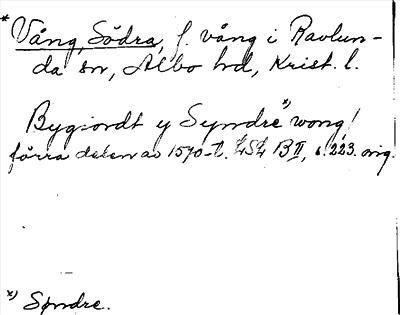 * Vång, Södra, f. vång i Ravlun-
da sn, Albo hd, Krist. l.
Bygiordt y Syndre *) wong /
förra delen av 1570-t. B II, s. 223. orig.
*) Søndre.